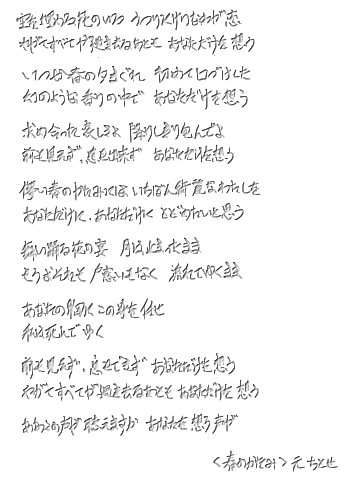 空を埋める花のいつ うつりにけりなわが恋
やがてすべてが過ぎ去るあとも あなただけを想う
いつか春の夕まぐれ 初めて口づけした
幻のような香りの中で あなただけを想う
求め合った哀しみよ 降りしきり包んでよ
前も見えず、息も出来ず あなただけを想う
儚い春のかたみには いちばん綺麗なわたしを
あなただけに、あなたに とどめたいと思う
舞い踊る花の宴 月は止まったまま
そうよそれも 戸惑いもなく 流れてゆくまま
あなたの胸に この身を任せ
私は死んでゆく
前も見えず、息もできず あなただけを想う
やがてすべてが過ぎ去るあとも あなただけを想う
あたしの声が聴こえますか あなたを想う声が
＜春のかたみ＞ 元ちとせ